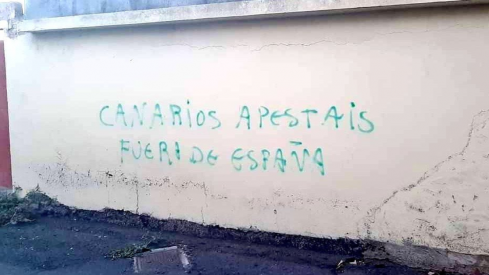 CANARIOS APESTAIS
FUERA DE ESPAÑA